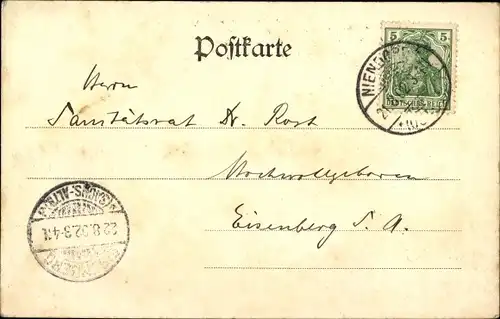 5 5
Postkarte
DEUTSCHES REICH
NIEND
Herrn
Sanitätsrat Dr. Rost
Hochwohlgeboren
Eisenberg S. A.
(SACHS.-ALTB.)
22.8.02.3-4N.
EISENBERG